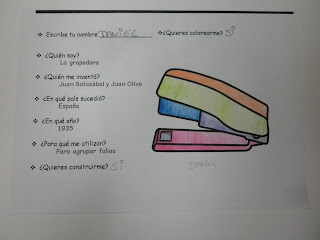 ❖ Escribe tu nombre DANIEL ❖ ¿Quieres colorearme? SÍ
❖ ¿Quién soy?
La grapadora
❖ ¿Quién me inventó?
Juan Solozábal y Juan Olive
❖ ¿En qué país sucedió?
España
❖ ¿En qué año?
1935
❖ ¿Para qué me utilizan?
Para agrupar folios
❖ ¿Quieres construirme? SÍ
DANIEL